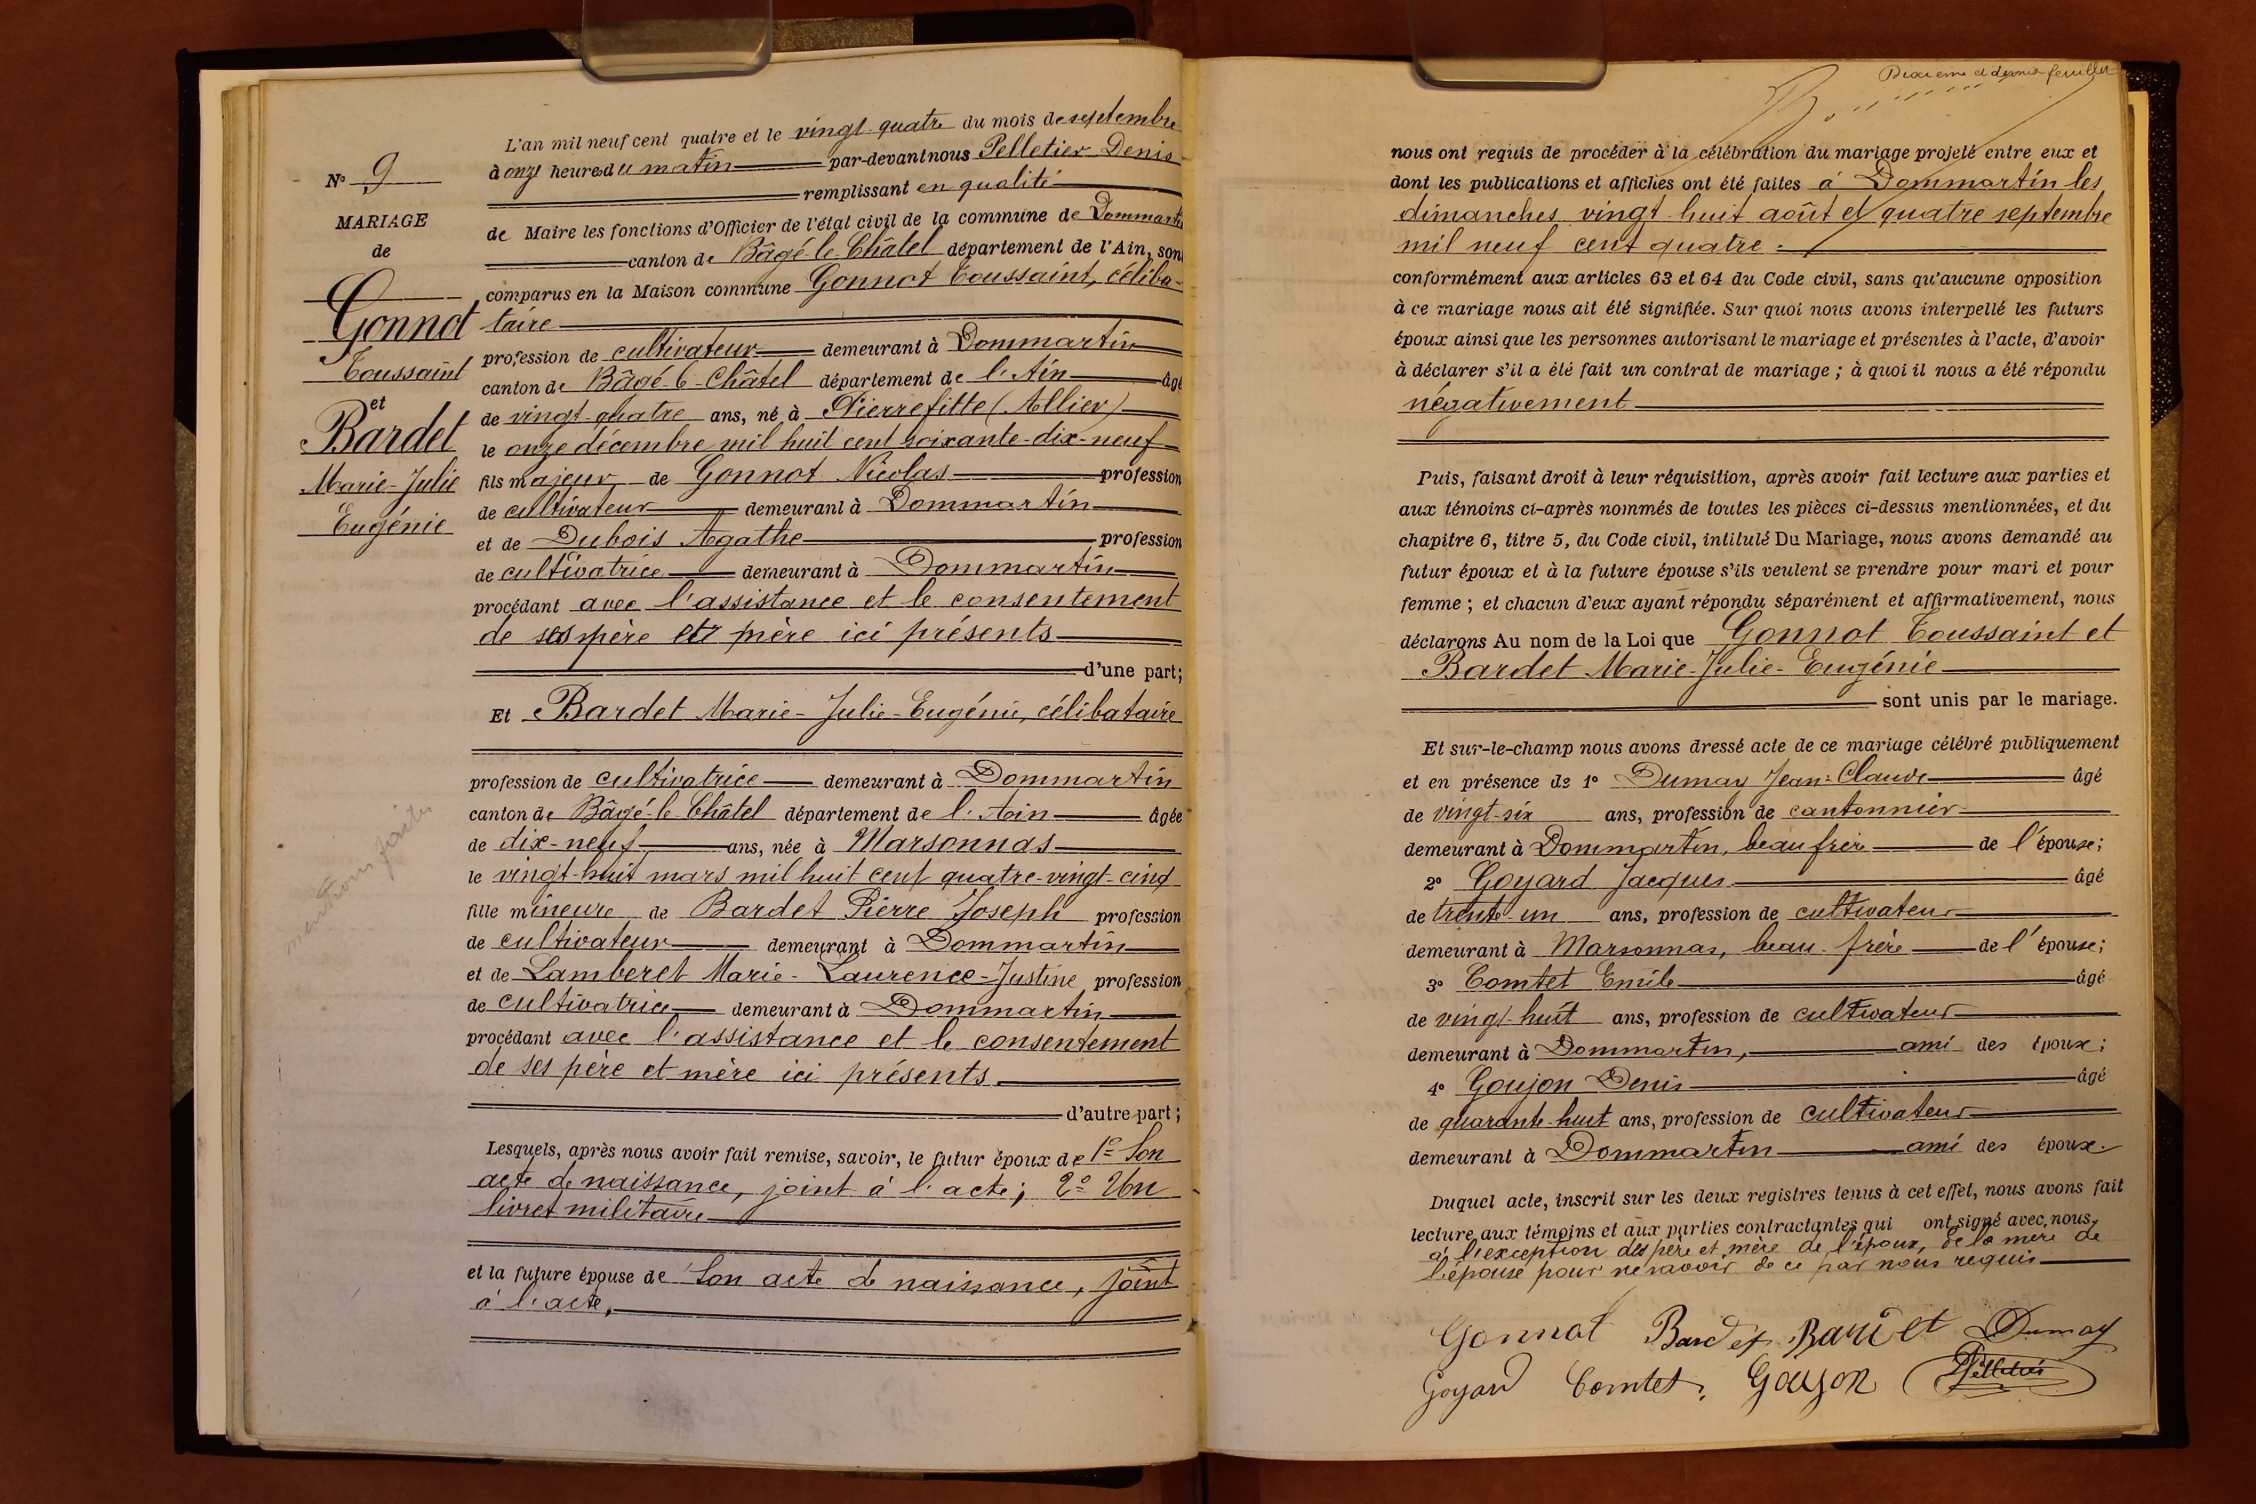 N° 9
MARIAGE
de
Gonnot
Toussaint
et
Bardet
Marie-Julie
Eugénie
mentions faites
L'an mil neuf cent quatre et le vingt-quatre du mois de septembre
à onze heures du matin par-devant nous Pelletier Denis
remplissant en qualité
de Maire les fonctions d'Officier de l'état civil de la commune de Dommartin
canton de Bâgé-le-Châtel département de l'Ain, sont
comparus en la Maison commune Gonnot Toussaint, céliba-
taire
profession de cultivateur demeurant à Dommartin
canton de Bâgé-le-Châtel département de l'Ain âgé
de vingt-quatre ans, né à Pierrefitte (Allier)
le onze décembre mil huit cent soixante-dix-neuf
fils majeur de Gonnot Nicolas profession
de cultivateur demeurant à Dommartin
et de Dubois Agathe profession
de cultivatrice demeurant à Dommartin
procédant avec l'assistance et le consentement
de ses père et mère ici présents
d'une part;
Et Bardet Marie-Julie-Eugénie, célibataire
profession de cultivatrice demeurant à Dommartin
canton de Bâgé-le-Châtel département de l'Ain âgée
de dix-neuf ans, née à Marsonnas
le vingt-huit mars mil huit cent quatre-vingt-cinq
fille mineure de Bardet Pierre Joseph profession
de cultivateur demeurant à Dommartin
et de Lamberet Marie-Laurence-Justine profession
de cultivatrice demeurant à Dommartin
procédant avec l'assistance et le consentement
de ses père et mère ici présents
d'autre part;
Lesquels, après nous avoir fait remise, savoir, le futur époux de 1° Son
acte de naissance, joint à l'acte; 2° Un
livret militaire
et la future épouse de Son acte de naissance, joint
à l'acte,
Deuxième et dernier feuillet
nous ont requis de procéder à la célébration du mariage projeté entre eux et
dont les publications et affiches ont été faites à Dommartin les
dimanches vingt huit août et quatre septembre
mil neuf cent quatre.
conformément aux articles 63 et 64 du Code civil, sans qu'aucune opposition
à ce mariage nous ait été signifiée. Sur quoi nous avons interpellé les futurs
époux ainsi que les personnes autorisant le mariage et présentes à l'acte, d'avoir
à déclarer s'il a été fait un contrat de mariage; à quoi il nous a été répondu
négativement
Puis, faisant droit à leur réquisition, après avoir fait lecture aux parties et
aux témoins ci-après nommés de toutes les pièces ci-dessus mentionnées, et du
chapitre 6, titre 5, du Code civil, intitulé Du Mariage, nous avons demandé au
futur époux et à la future épouse s'ils veulent se prendre pour mari et pour
femme; et chacun d'eux ayant répondu séparément et affirmativement, nous
déclarons Au nom de la Loi que Gonnot Toussaint et
Bardet Marie-Julie-Eugénie
sont unis par le mariage.
Et sur-le-champ nous avons dressé acte de ce mariage célébré publiquement
et en présence de 1° Dumay Jean-Claude âgé
de vingt-six ans, profession de cantonnier
demeurant à Dommartin, beau frère de l'épouse;
2° Goyard Jacques âgé
de trente-un ans, profession de cultivateur
demeurant à Marsonnas, beau-frère de l'épouse;
3° Comtet Emile âgé
de vingt-huit ans, profession de cultivateur
demeurant à Dommartin, ami des époux;
4° Goujon Denis âgé
de quarante-huit ans, profession de cultivateur
demeurant à Dommartin ami des époux
Duquel acte, inscrit sur les deux registres tenus à cet effet, nous avons fait
lecture aux témoins et aux parties contractantes qui ont signé avec nous,
à l'exception des père et mère de l'époux, de la mère de
l'épouse pour ne savoir de ce par nous requis
Gonnot Bardet Bardet Dumay
Goyard Comtet Goujon Pelletier